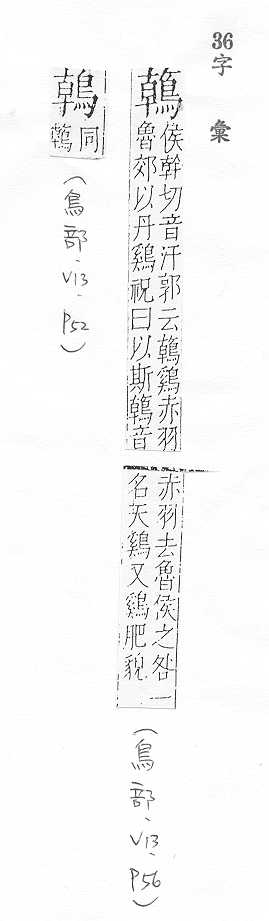 36字 彙
鶾
侯幹切音汗郭云鶾鷄赤羽
魯郊以丹鷄祝曰以斯鶾音
赤羽去魯侯之咎一
名天鷄又鷄肥貌
(鳥部、V13、P56)
同
鶾
(鳥部、V13、P52)